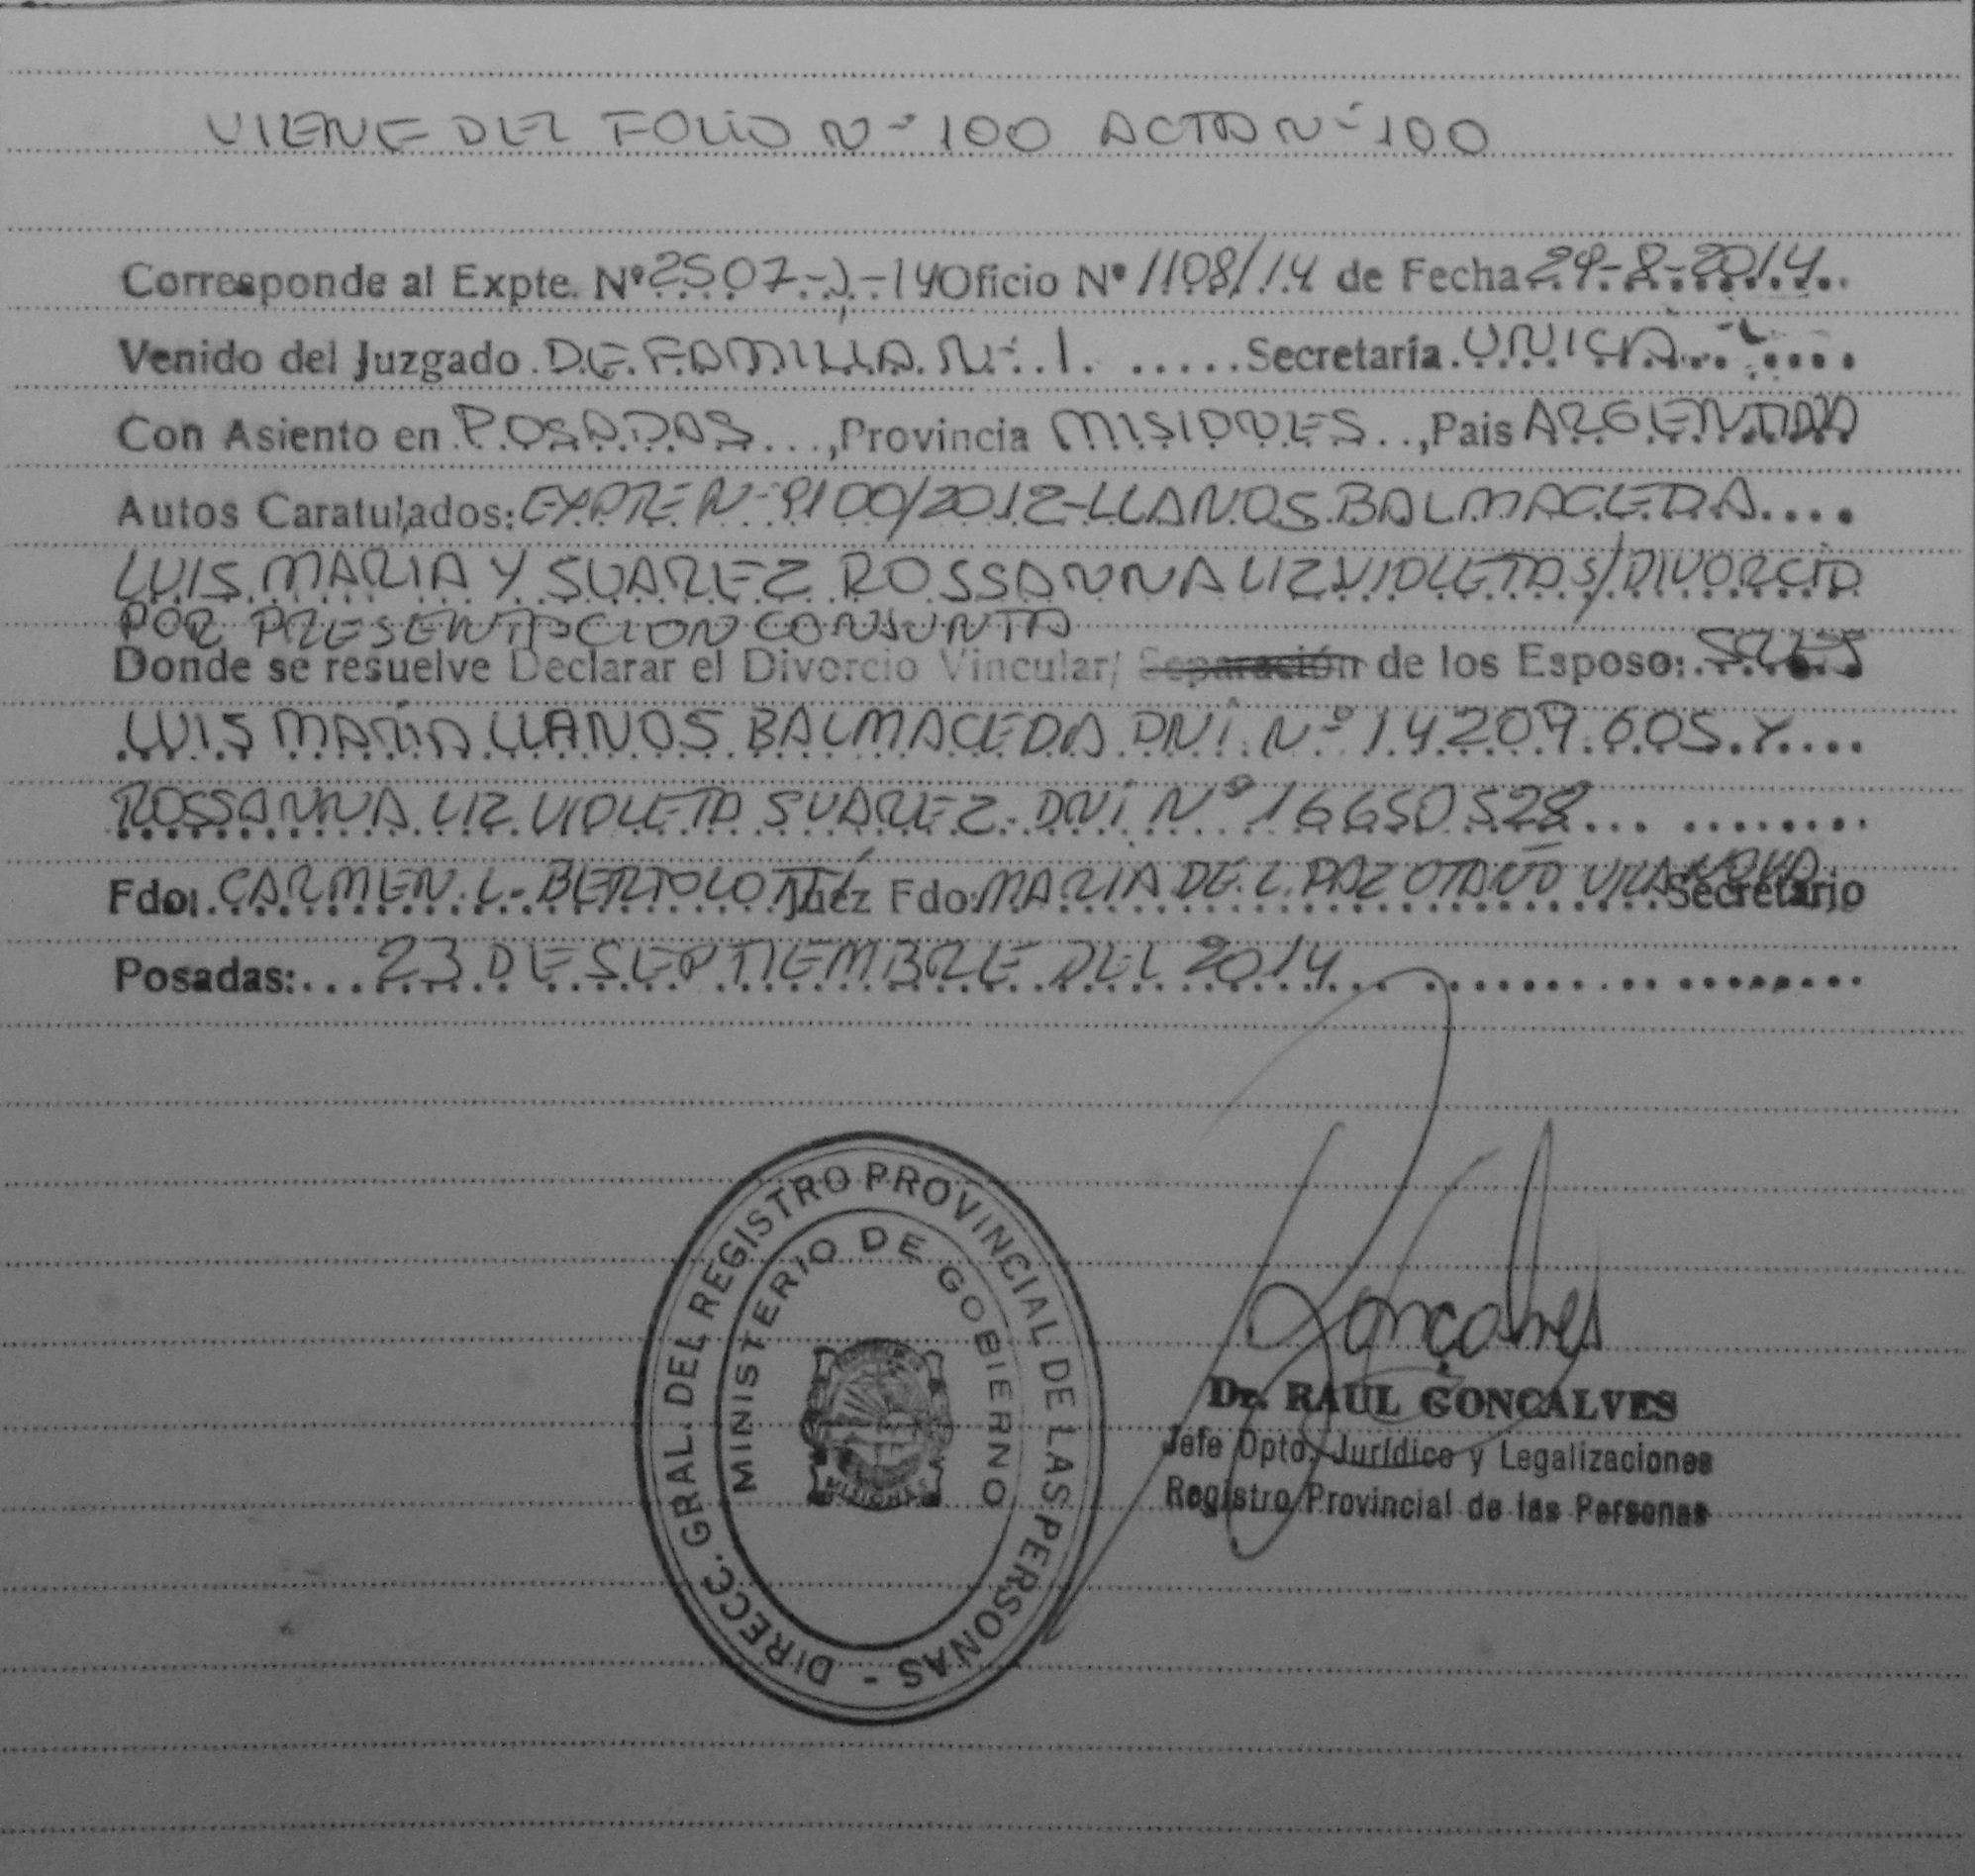 VIENE DEL FOLIO Nº 100 ACTA Nº 100
Corresponde al Expte. Nº 2507-J-14 Oficio Nº 1108/14 de Fecha 29-8-2014
Venido del Juzgado DE FAMILIA Nº 1 Secretaría UNICA
Con Asiento en POSADAS, Provincia MISIONES, Pais ARGENTINA
Autos Caratulados: EXPTE Nº 9100/2012-LLANOS BALMACEDA
LUIS MARIA Y SUAREZ ROSSANNA LIZ VIOLETA S/DIVORCIO
POR PRESENTACION CONJUNTA
Donde se resuelve Declarar el Divorcio Vincular/ Separación de los Esposo:
LUIS MARIA LLANOS BALMACEDA DNI Nº 14.209.605 Y
ROSSANNA LIZ VIOLETA SUAREZ-DNI Nº 16650528
Fdo: CARMEN L. BERTOLOTTI Juez Fdo: MARIA DE L. PAZ OTAÑO VILANOVA Secretario
Posadas: 23 DE SEPTIEMBRE DEL 2014
DIRECC. GRAL. DEL REGISTRO PROVINCIAL DE LAS PERSONAS -
MINISTERIO DE GOBIERNO
MISIONES
Goncalves
Dr. RAUL GONCALVES
Jefe Dpto. Jurídico y Legalizaciones
Registro Provincial de las Personas